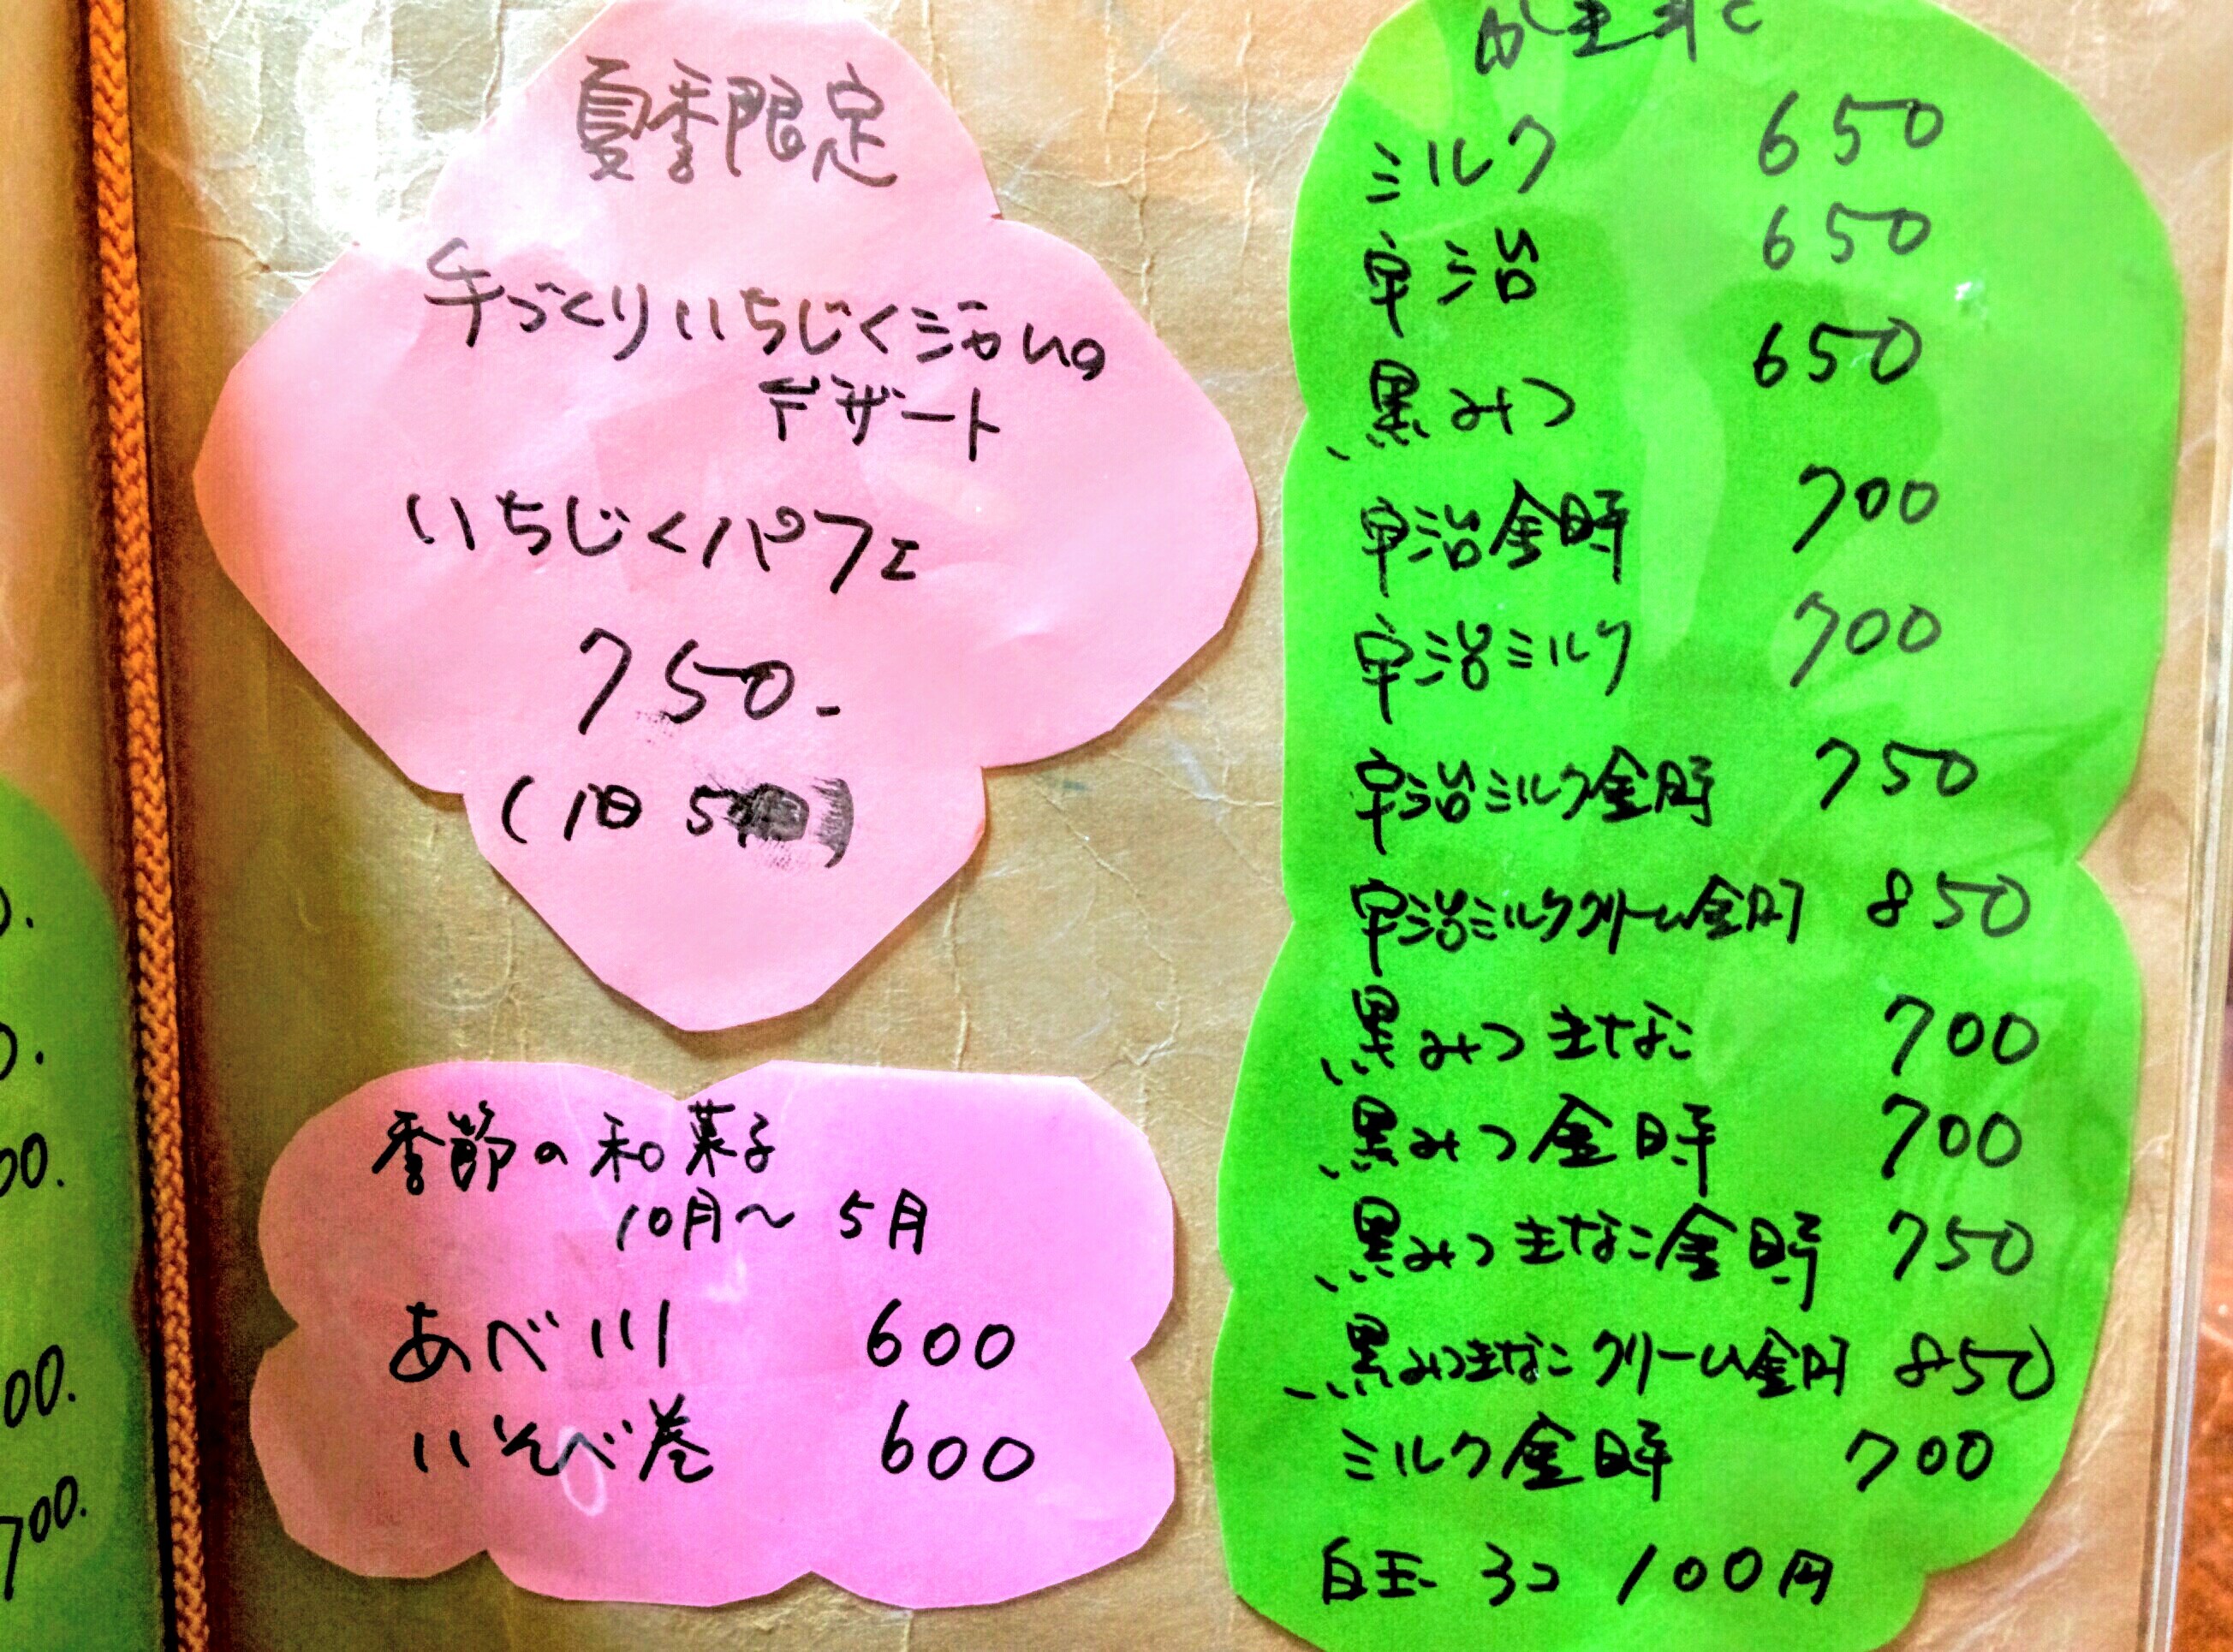 夏季限定
手づくりいちじくジャムの
デザート
いちじくパフェ
750.-
(1日5
季節の和菓子
10月〜5月
あべ川 600
いそべ巻 600
ミルク 650
宇治 650
黒みつ 650
宇治金時 700
宇治ミルク 700
宇治ミルク金時 750
宇治ミルククリーム金時 850
黒みつきなこ 700
黒みつ金時 700
黒みつきなこ金時 750
黒みつきなこクリーム金時 850
ミルク金時 700
白玉 3コ 100円
00.
00.
700.